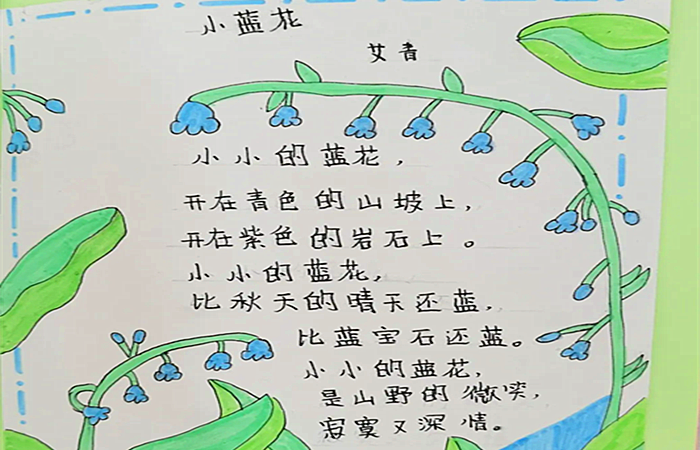 小蓝花
艾青
小小的蓝花，
开在青色的山坡上，
开在紫色的岩石上。
小小的蓝花，
比秋天的晴天还蓝，
比蓝宝石还蓝。
小小的蓝花，
是山野的微笑，
寂寞又深情。